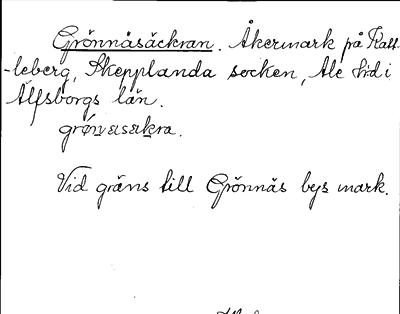 Grönnäsäckran. Åkermark på Katt-
-leberg, Skepplanda socken, Ale hd i
Älfsborgs län.
Vid gräns till Grönnäs bys mark.